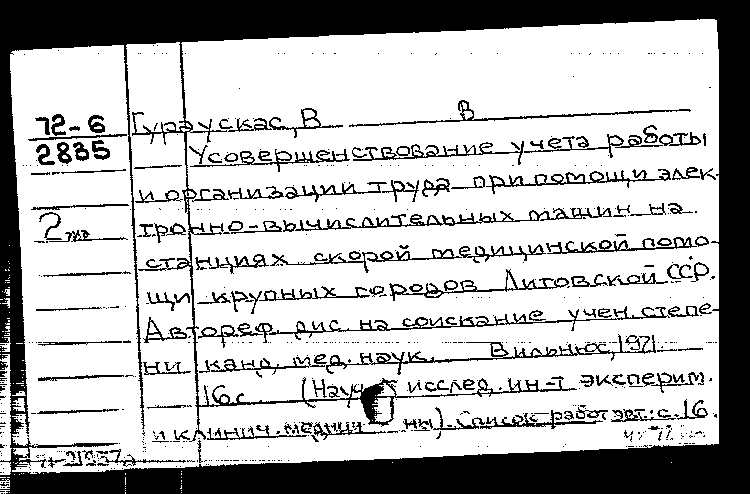 72-6
2835
2
Гураускас, В В
Усовершенствование учета работы
и организации труда при помощи элек-
тронно-вычислительных машин на
станциях скорой медицинской помо-
щи крупных городов Литовской ССР.
Автореф. дис. на соискание учен. степе-
ни канд. мед. наук. Вильнюс, 1971.
16с. (Науч исслед. ин-т эксперим.
и клинич. медицин ны). Список работ авт.: с. 16.